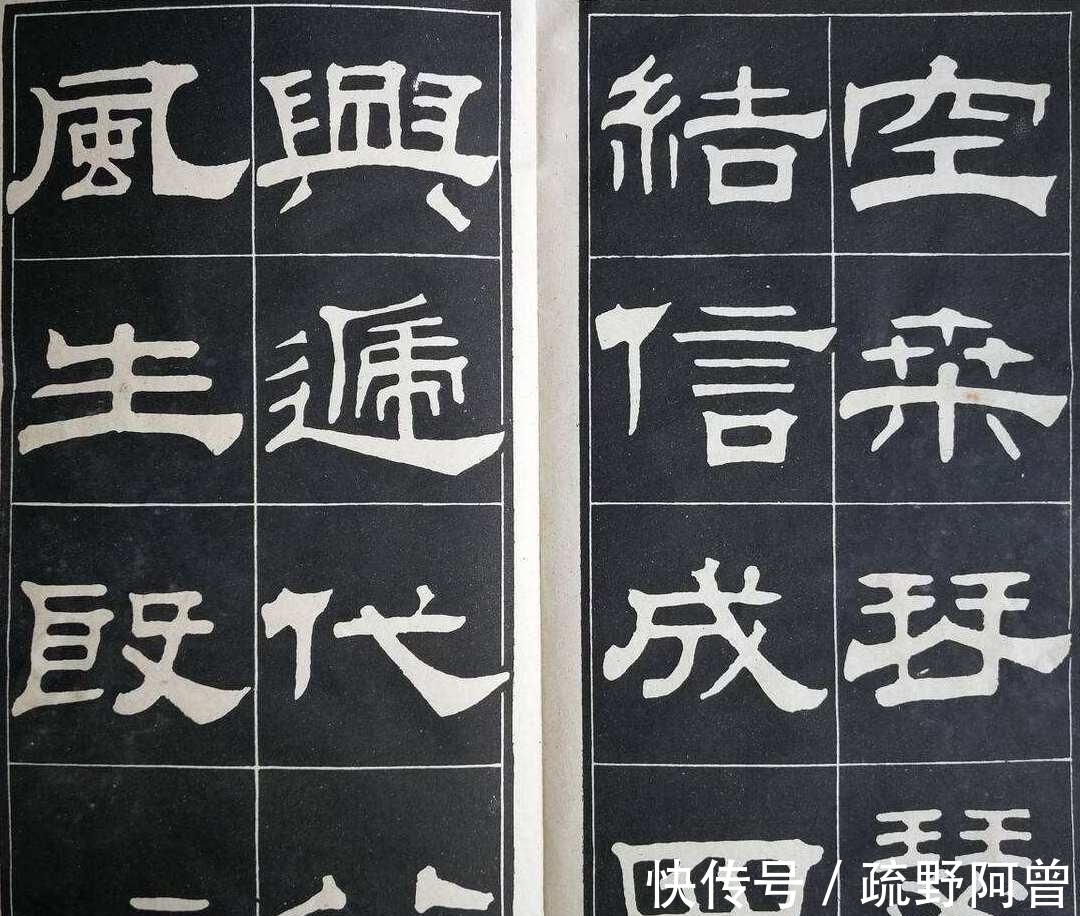 空桒琴
結信成四
興遞代
風生殷
快传号/疏野阿曾